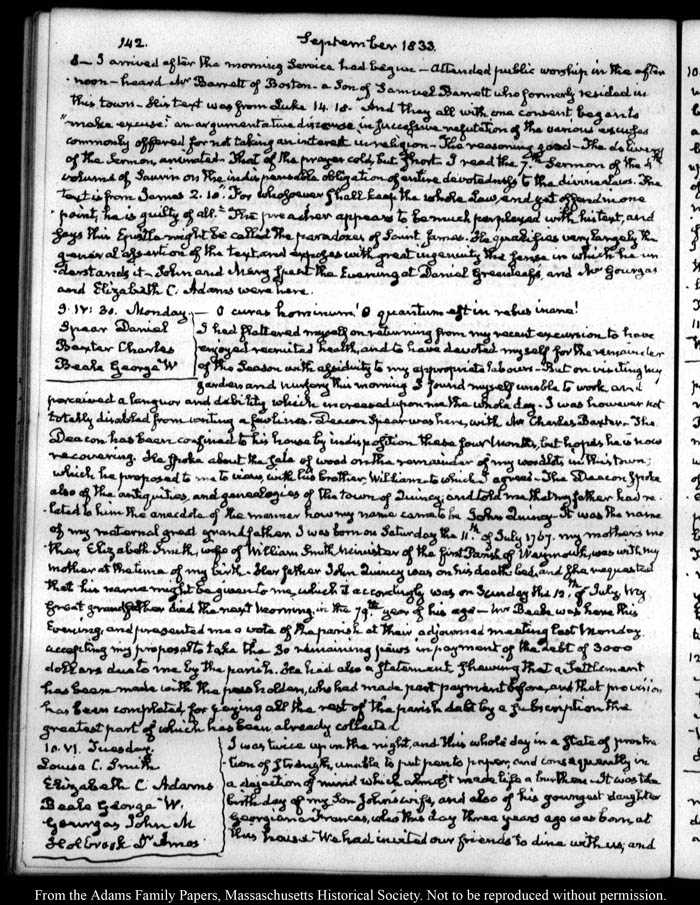 142. September 1833.
8 — I arrived after the morning Service had begun — Attended public worship in the after
noon — heard Mr Barrett of Boston — a Son of Samuel Barrett who formerly resided in
this town — His text was from Luke 14. 18. "And they all with one consent began to
"make excuse." an argumentative discourse, in successive refutation of the various excuses
commonly offered for not taking an interest in religion — The reasoning good — The delivery
of the Sermon, animated — That of the prayer cold, but short. I read the 7th Sermon of the 4th
volume of Saurin on the indispensable obligation of entire devotedness to the divine Law. The
text is from James 2. 10. "For whosoever shall keep the whole Law, and yet offend in one
point, he is guilty of all." The preacher appears to be much perplexed with his text, and
says this Epistle might be called the paradoxes of Saint James. He qualifies very largely the
general assertion of the text and exposes with great ingenuity the sense in which he un
derstands it — John and Mary spent the Evening at Daniel Greenleaf's, and Mr Gourgas
and Elizabeth C. Adams were here.
9. IV: 30. Monday. — O curas hominum! O quantum est in rebus inane!
Spear Daniel
Baxter Charles
Beale George W
I had flattered myself on returning from my recent excursion to have
enjoyed recruited health, and to have devoted myself for the remainder
of the Season with assiduity to my appropriate labours — But on visiting my
garden and nursery this morning I found myself unable to work, and
perceived a languor and debility which increased upon me the whole day. I was however not
totally disabled from writing a few lines. Deacon Spear was here, with Mr Charles Baxter. The
Deacon has been confined to his house by indisposition these four Months, but hopes he is now
recovering. He spoke about the sale of wood on the remainder of my woodlots in this town;
which he proposed to me to view, with his brother William to which I agreed — The Deacon spoke
also of the antiquities, and genealogies of the town of Quincy; and told me that my father had re
lated to him the anecdote of the manner how my name came to be John Quincy. It was the name
of my maternal great grandfather. I was born on Saturday the 11th of July 1767. my mother's mo
ther, Elizabeth Smith, wife of William Smith Minister of the first Parish of Weymouth, was with my
mother at the time of my birth. Her father John Quincy was on his death bed, and she requested
that his name might be given to me, which it accordingly was on Sunday the 12th of July. My
Great grandfather died the next morning, in the 79th year of his age — Mr Beale was here this
Evening, and presented me a vote of the parish at their adjourned meeting last Monday
accepting my proposal to take the 30 remaining pews in payment of the debt of 3000
dollars due to me by the parish. He had also a Statement shewing that a Settlement
has been made with the pew holders, who had made part payment before, and that provision
has been completed for paying all the rest of the parish debt by a subscription the
greatest part of which has been already collected
10. VI. Tuesday.
Louisa C. Smith
Elizabeth C. Adams
Beale George W.
Gourgas John M
Holbrook Dr Amos
I was twice up in the night, and this whole day in a state of prostra
tion of strength, unable to put pen to paper, and consequently in
a dejection of mind which almost made life a burthen. It was the
birth day of my Son John's wife, and also of his youngest daughter
Georgiana Frances, who this day three years ago was born, at
this house. We had invited our friends to dine with us; and
From the Adams Family Papers, Massachusetts Historical Society. Not to be reproduced without permission.